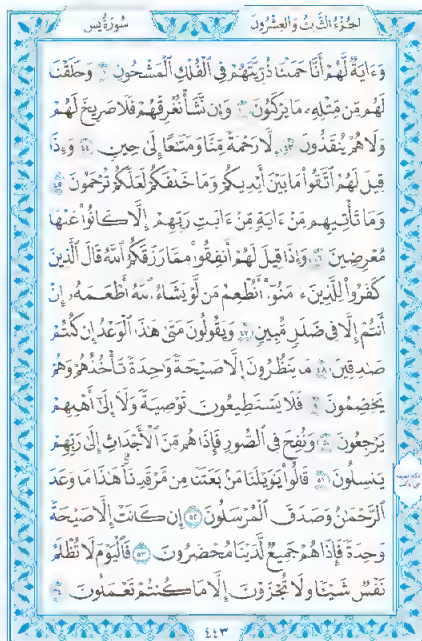 الجزء الثالث والعشرون
سورة يس
وَءَايَةٌ لَّهُمْ أَنَّا حَمَلْنَا ذُرِّيَّتَهُمْ فِي الْفُلْكِ الْمَشْحُونِ ٤١ وَخَلَقْنَا
لَهُم مِّن مِّثْلِهِ مَا يَرْكَبُونَ ٤٢ وَإِن نَّشَأْ نُغْرِقْهُمْ فَلَا صَرِيخَ لَهُمْ
وَلَا هُمْ يُنقَذُونَ ٤٣ إِلَّا رَحْمَةً مِّنَّا وَمَتَاعًا إِلَىٰ حِينٍ ٤٤ وَإِذَا
قِيلَ لَهُمُ اتَّقُوا مَا بَيْنَ أَيْدِيكُمْ وَمَا خَلْفَكُمْ لَعَلَّكُمْ تُرْحَمُونَ ٤٥
وَمَا تَأْتِيهِم مِّنْ ءَايَةٍ مِّنْ ءَايَاتِ رَبِّهِمْ إِلَّا كَانُوا عَنْهَا
مُعْرِضِينَ ٤٦ وَإِذَا قِيلَ لَهُمْ أَنفِقُوا مِمَّا رَزَقَكُمُ اللَّهُ قَالَ الَّذِينَ
كَفَرُوا لِلَّذِينَ ءَامَنُوا أَنُطْعِمُ مَن لَّوْ يَشَاءُ اللَّهُ أَطْعَمَهُ إِنْ
أَنتُمْ إِلَّا فِي ضَلَالٍ مُّبِينٍ ٤٧ وَيَقُولُونَ مَتَىٰ هَٰذَا الْوَعْدُ إِن كُنتُمْ
صَادِقِينَ ٤٨ مَا يَنظُرُونَ إِلَّا صَيْحَةً وَاحِدَةً تَأْخُذُهُمْ وَهُمْ
يَخِصِّمُونَ ٤٩ فَلَا يَسْتَطِيعُونَ تَوْصِيَةً وَلَا إِلَىٰ أَهْلِهِمْ
يَرْجِعُونَ ٥٠ وَنُفِخَ فِي الصُّورِ فَإِذَا هُم مِّنَ الْأَجْدَاثِ إِلَىٰ رَبِّهِمْ
يَنسِلُونَ ٥١ قَالُوا يَا وَيْلَنَا مَن بَعَثَنَا مِن مَّرْقَدِنَا هَٰذَا مَا وَعَدَ
الرَّحْمَٰنُ وَصَدَقَ الْمُرْسَلُونَ ٥٢ إِن كَانَتْ إِلَّا صَيْحَةً
وَاحِدَةً فَإِذَا هُمْ جَمِيعٌ لَّدَيْنَا مُحْضَرُونَ ٥٣ فَالْيَوْمَ لَا تُظْلَمُ
نَفْسٌ شَيْئًا وَلَا تُجْزَوْنَ إِلَّا مَا كُنتُمْ تَعْمَلُونَ ٥٤
٤٤٣